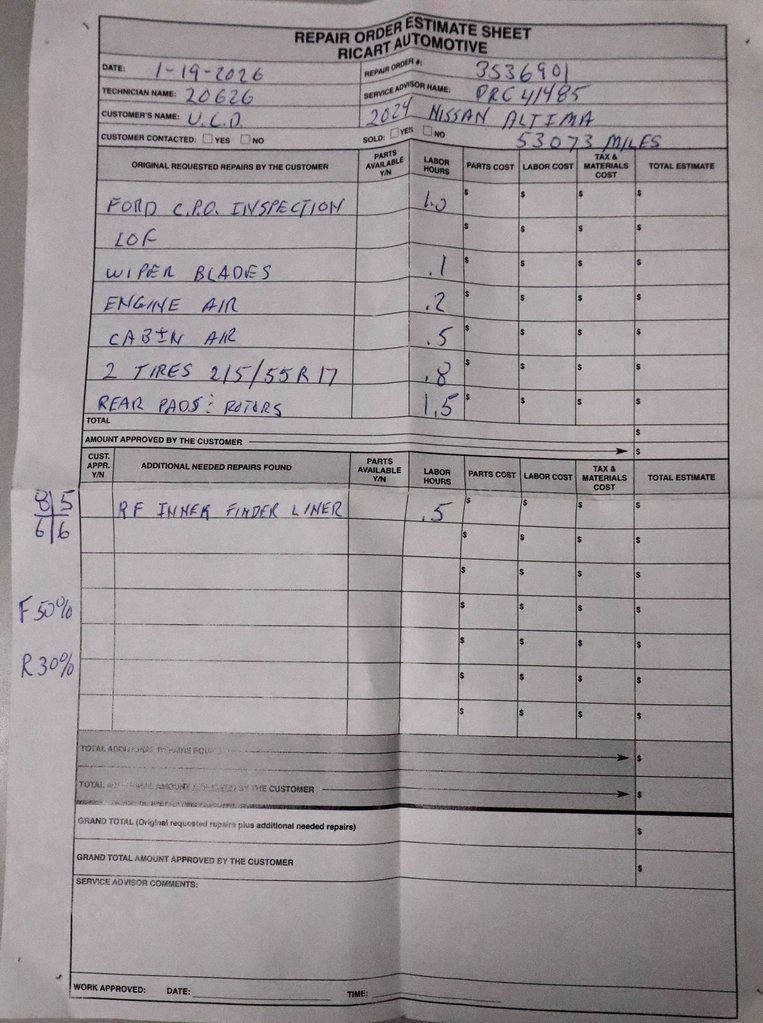 REPAIR ORDER ESTIMATE SHEET
RICART AUTOMOTIVE
DATE: 1-19-2026 REPAIR ORDER #: 3536901
TECHNICIAN NAME: 20626 SERVICE ADVISOR NAME: PRC41485
CUSTOMER'S NAME: U.C.D. 2024 NISSAN ALTIMA
CUSTOMER CONTACTED: YES NO SOLD: YES NO 53073 MILES
ORIGINAL REQUESTED REPAIRS BY THE CUSTOMER PARTS AVAILABLE Y/N LABOR HOURS PARTS COST LABOR COST TAX & MATERIALS COST TOTAL ESTIMATE
FORD C.P.O. INSPECTION 1.0 $ $ $ $
LOF $ $ $ $
WIPER BLADES .1 $ $ $ $
ENGINE AIR .2 $ $ $ $
CABIN AIR .5 $ $ $ $
2 TIRES 215/55R17 .8 $ $ $ $
REAR PADS : ROTORS 1.5 $ $ $ $
TOTAL $
AMOUNT APPROVED BY THE CUSTOMER $
CUST. APPR. Y/N ADDITIONAL NEEDED REPAIRS FOUND PARTS AVAILABLE Y/N LABOR HOURS PARTS COST LABOR COST TAX & MATERIALS COST TOTAL ESTIMATE
8|5 RF INNER FINDER LINER .5 $ $ $ $
6|6 $ $ $ $
$ $ $ $
F 50% $ $ $ $
$ $ $ $
R 30% $ $ $ $
$ $ $ $
TOTAL ADDITIONAL REPAIRS FOUND $
TOTAL ADDITIONAL AMOUNT APPROVED BY THE CUSTOMER $
GRAND TOTAL (Original requested repairs plus additional needed repairs) $
GRAND TOTAL AMOUNT APPROVED BY THE CUSTOMER $
SERVICE ADVISOR COMMENTS:
WORK APPROVED: DATE: TIME: